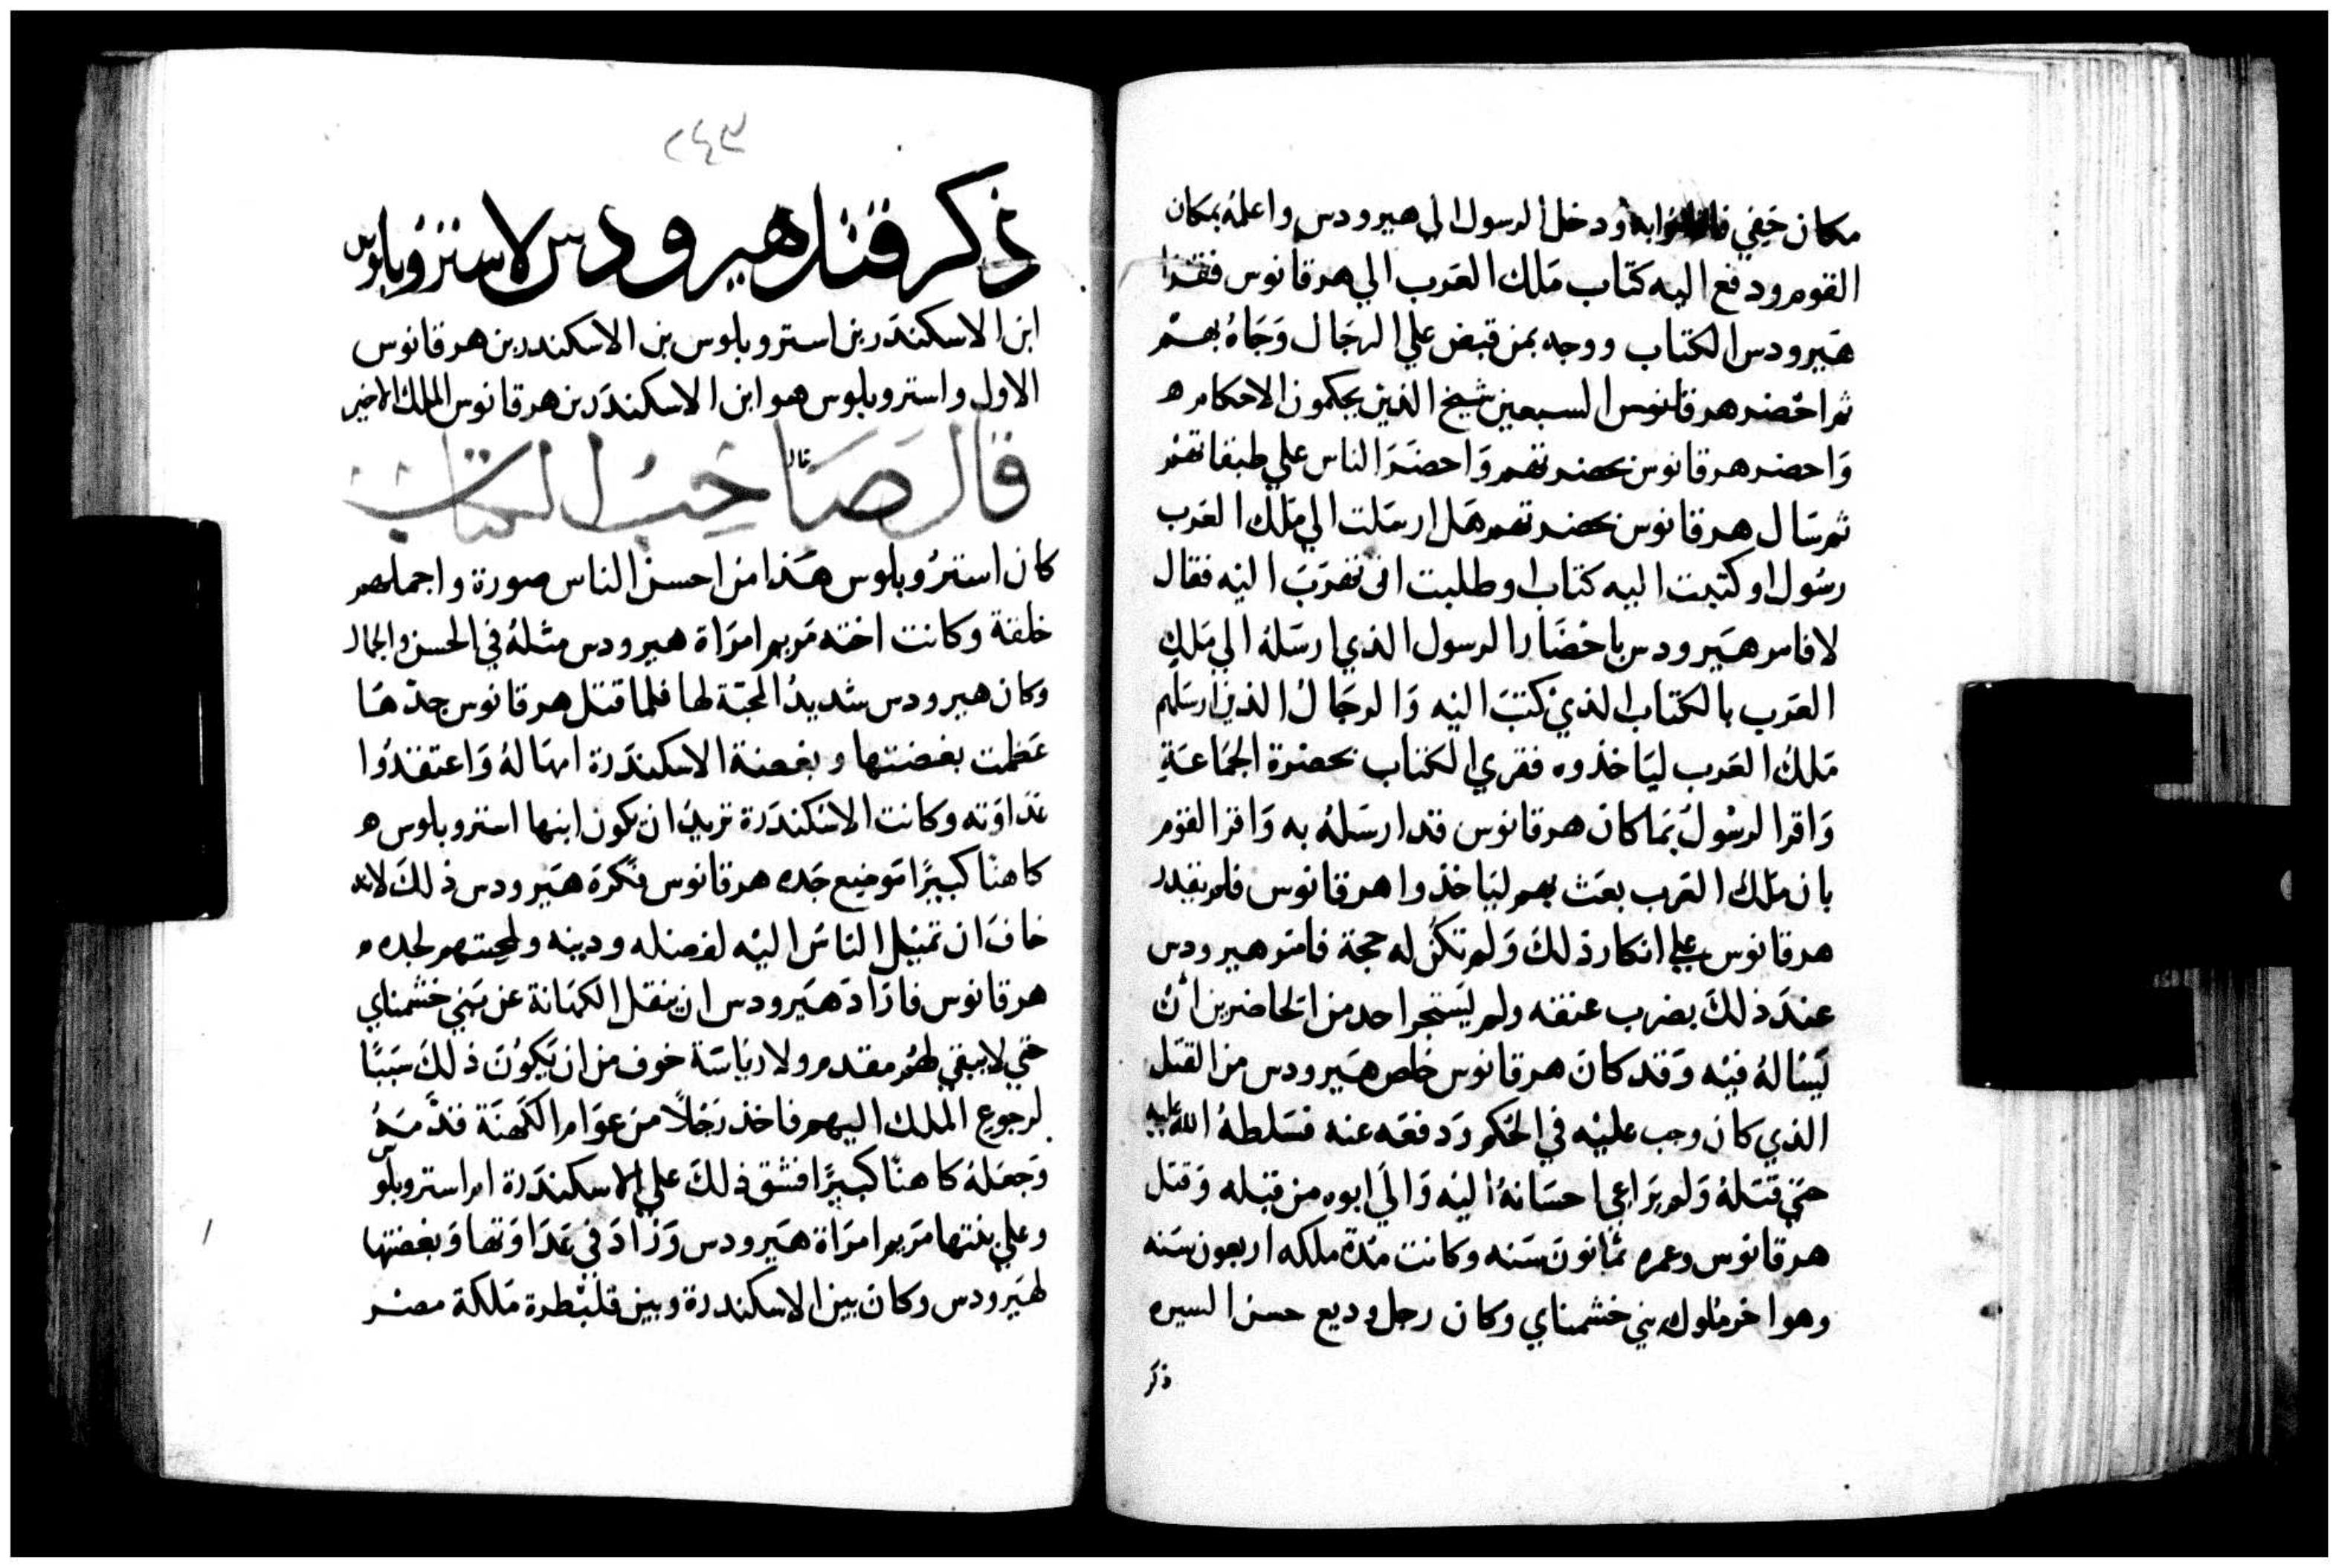 مكان خفي ودخل الرسول الي هيرودس واعلمه بمكان
القوم ودفع اليه كتاب ملك العرب الي هرقانوس فقرا
هيرودس الكتاب ووجه بمن قبض علي الرجال وجاه بهم
ثم احضر هرقانوس السبعين شيخ الذين يحكمون الاحكام ه
واحضر هرقانوس بحضرتهم واحضر الناس علي طبقاتهم
ثم سال هرقانوس بحضرتهم هل ارسلت الي ملك العرب
رسولا وكتبت اليه كتابا وطلبت ان تهرب اليه فقال
لا فامر هيرودس باحضار الرسول الذي ارسله الي ملك
العرب بالكتاب الذي كتب اليه والرجال الذين ارسلهم
ملك العرب لياخذوه فقري الكتاب بحضرة الجماعة
واقرا لرسول بما كان هرقانوس قد ارسله به واقرا القوم
بان ملك العرب بعث بهم لياخذوا هرقانوس فلم يقدر
هرقانوس علي انكار ذلك ولم تكن له حجة فامر هيرودس
عند ذلك بضرب عنقه ولم يستجرا احد من الحاضرين ان
يساله فيه وقد كان هرقانوس خلص هيرودس من القتل
الذي كان وجب عليه في الحكم ودفعه عنه فسلطه الله عليه
حتي قتله ولم يراعي احسانه اليه والي ابوه من قبله وقتل
هرقانوس وعمره ثمانون سنه وكانت مدة ملكه اربعون سنه
وهو اخر ملوك بني خشمناي وكان رجل وديع حسن السيره
ذكر
٢٤٣
ذكر قتل هيرودس لاستروبلوس
ابن الاسكندر بن استروبلوس بن الاسكندر بن هرقانوس
الاول واستروبلوس هو ابن الاسكندر بن هرقانوس الملك الاخير
قال صاحب الكتاب
كان استروبلوس هذا من احسن الناس صورة واجملهم
خلقة وكانت اخته مريم امراة هيرودس مثله في الحسن والجمال
وكان هيرودس شديد المحبة لها فلما قتل هرقانوس جدها
عظمت بغضتها وبغضة الاسكندرة امها له واعتقدوا
عداوته وكانت الاسكندرة تريد ان يكون ابنها استروبلوس ه
كاهنا كبيرا موضع جده هرقانوس فكره هيرودس ذلك لانه
خاف ان تميل الناس اليه لفضله ودينه ولمحبتهم لجده ه
هرقانوس فاراد هيرودس ان ينقل الكهانة عن بني خشمناي
حتي لا يبقي لهم مقدم ولا رياسة خوف من ان يكون ذلك سببا
لرجوع الملك اليهم فاخذ رجلا من عوام الكهنة قدمه
وجعله كاهنا كبيرا فشق ذلك علي الاسكندرة ام استروبلوس
وعلي بنتها مريم امراة هيرودس وزاد في عداوتها وبغضتها
لهيرودس وكان بين الاسكندرة وبين قلبطرة ملكة مصر